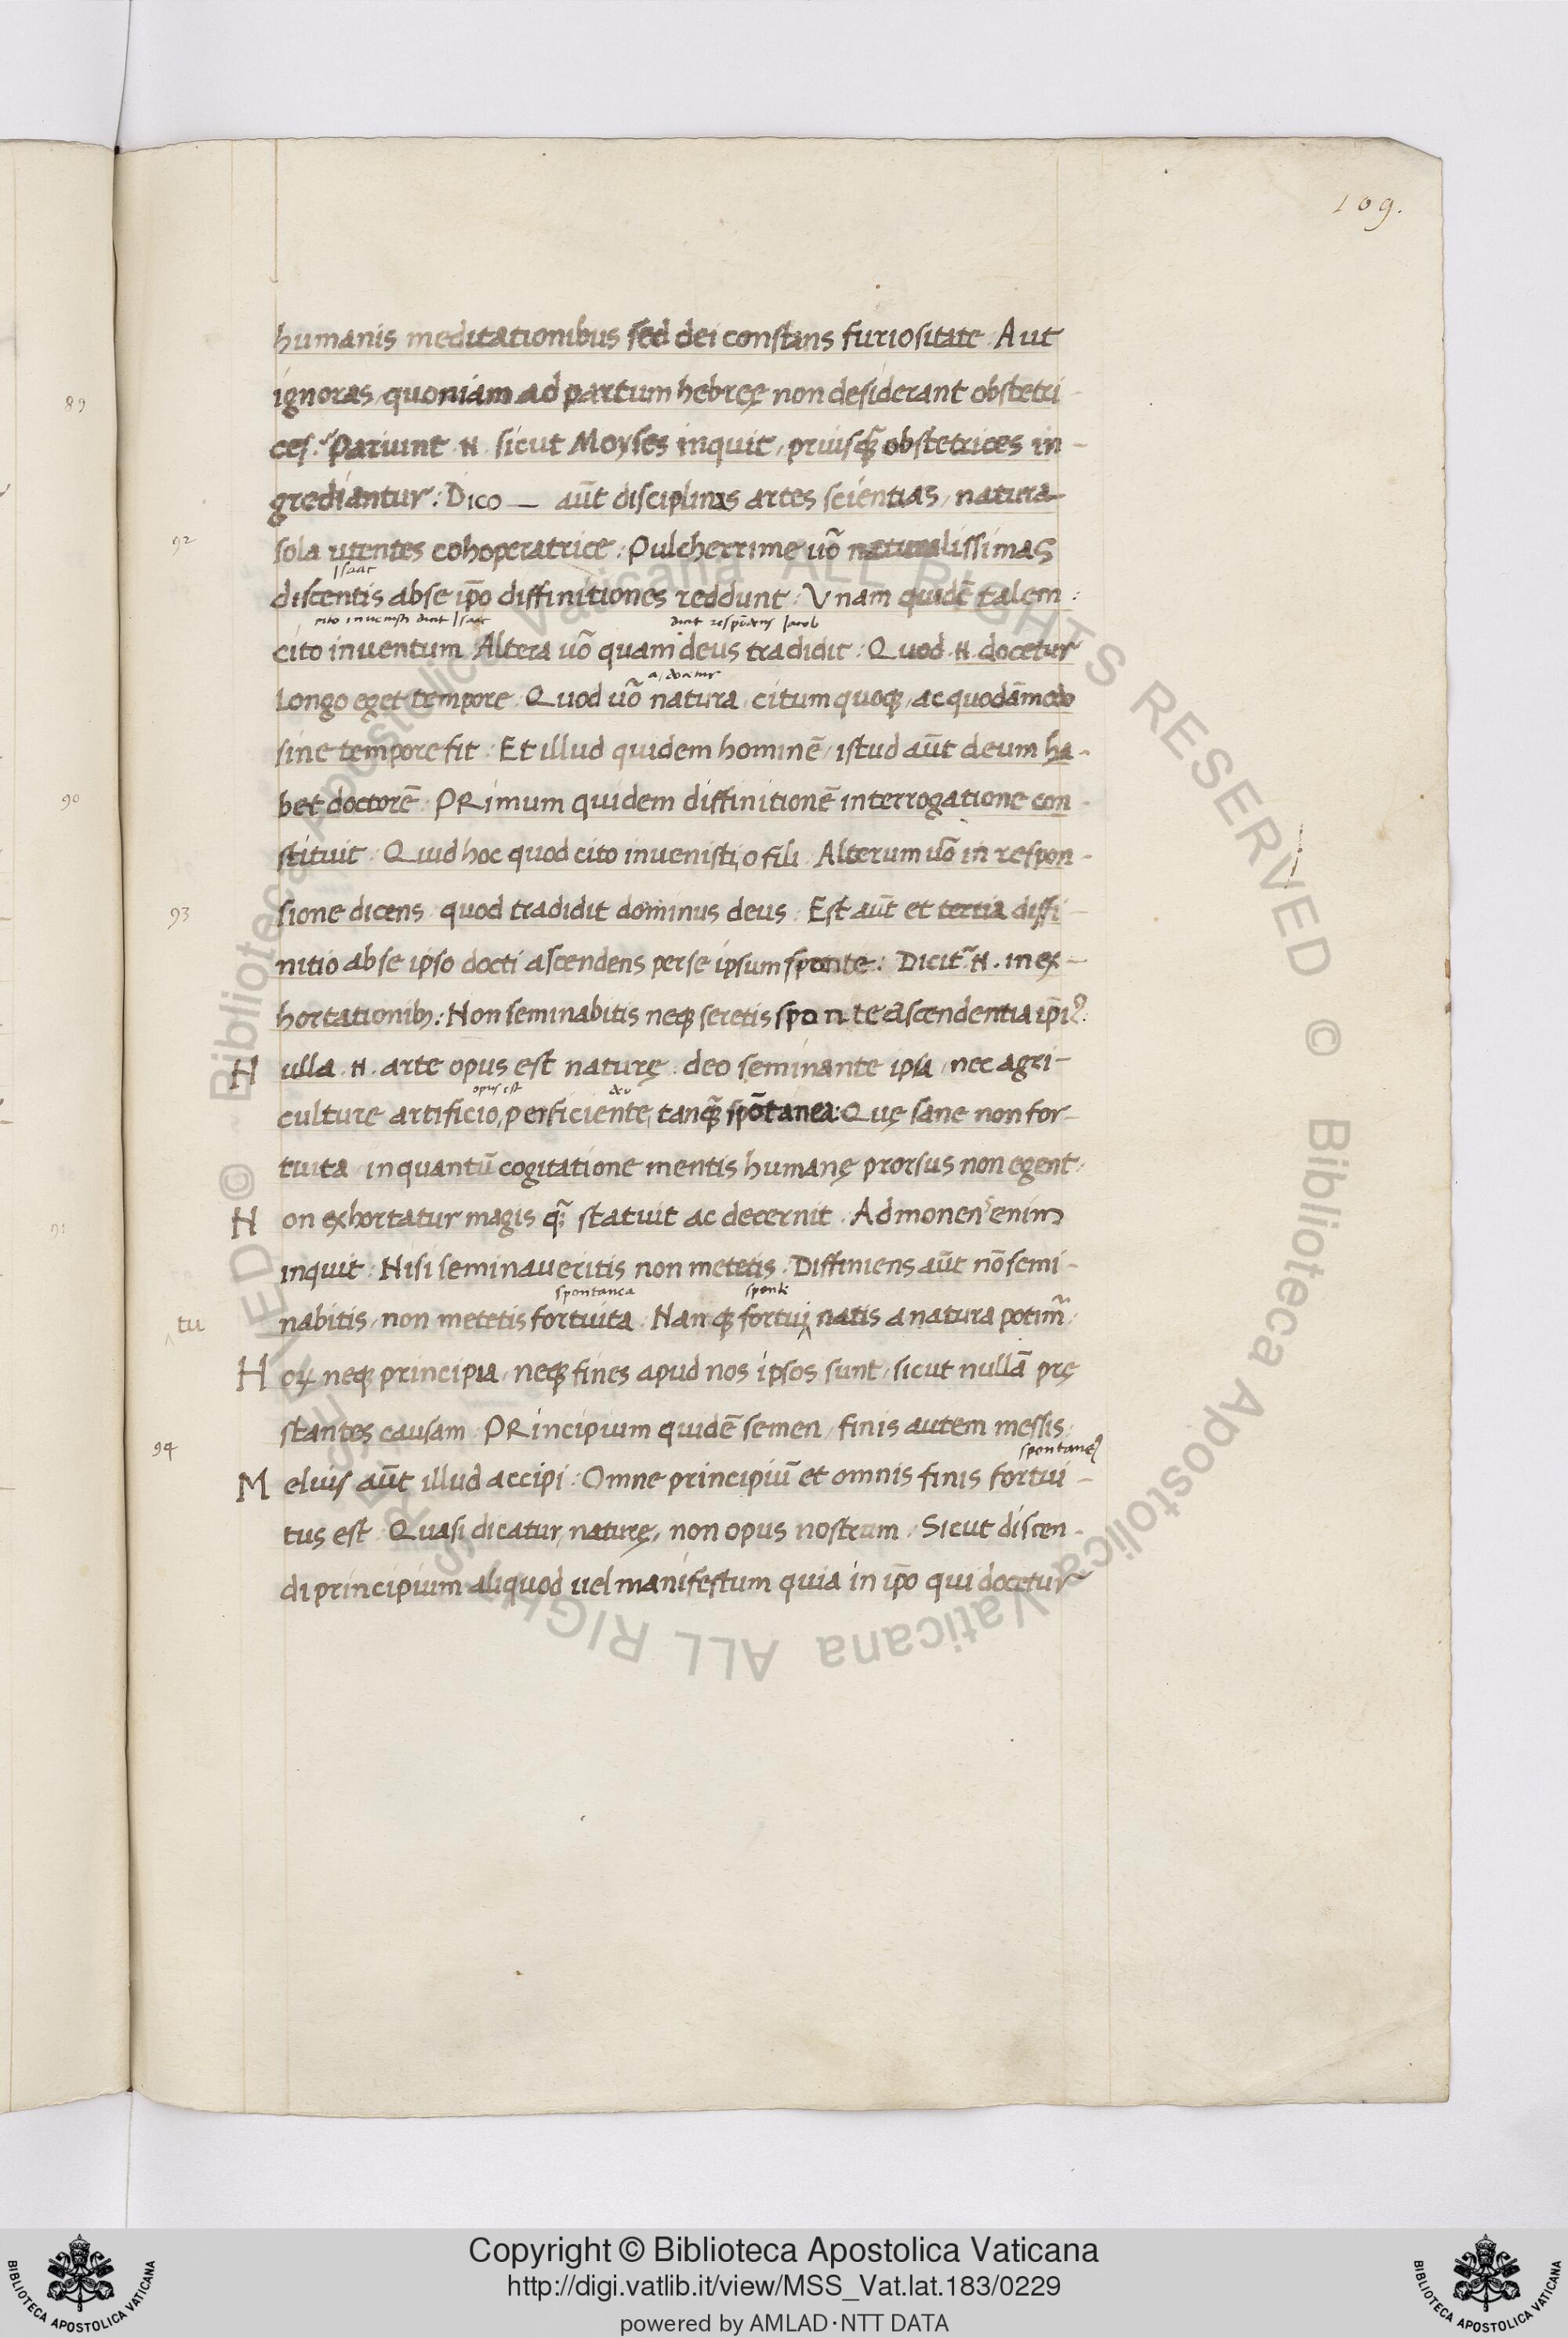 109.
humanis meditationibus sed dei constans furiositate. Aut
89
ignoras, quoniam ad partum hebrę non desiderant obstetri-
ces. Pariunt .N. sicut Moyses inquit, priusq̃ obstetrices in-
grediantur: Dico — aūt disciplinas artes scientias, natura
92
sola utentes cohoperatrice: Pulcherrime uō naturalissimas
Isaac
discentis abse ip̄o diffinitiones reddunt: Vnam quidē talem:
cito inuenisti dicit Isaac dicit respōdens Jacob
cito inuentum Altera uō quam deus tradidit: Quod .N. docetur
longo eget tempore. Quod uō natura, citum quoq, ac quodāmodo
sine tempore fit: Et illud quidem hominē, istud aūt deum ha-
90
bet doctorē. PRimum quidem diffinitionē interrogatione con-
stituit: Quid hoc quod cito inuenisti, o fili. Alterum uō in respon-
93
sione dicens quod tradidit dominus deus: Est aūt et tertia diffi-
nitio abse ipso docti ascendens perse ipsum sponte: Dicit̃ .N. in ex-
hortationib;: Non seminabitis neq seretis sponte ascendentia ip̄i
N ulla .N. arte opus est naturę. deo seminante ipsa, nec agri-
opus est deo
culture artificio, perficiente, tanq̃ spōtanea: Quę sane non for-
tuita inquantū cogitatione mentis humanę prorsus non egent,
N on exhortatur magis q̃; statuit ac decernit. Admonens enim
91
inquit: Nisi seminaueritis non metetis. Diffiniens aūt nō semi-
spontanea sponte
tu
nabitis, non metetis fortuita. Nanq fortui natis a natura potim̃,
H oꝝ neq principia, neq fines apud nos ipsos sunt, sicut nullā prę
stantes causam. PRincipium quidē semen, finis autem messis,
spontaneꝰ
94
M elius aūt illud accipi: Omne principiū et omnis finis fortui-
tus est. Quasi dicatur, naturę, non opus nostrum. Sicut discen-
di principium aliquod uel manifestum quia in ip̄o qui docetur
Copyright © Biblioteca Apostolica Vaticana
http://digi.vatlib.it/view/MSS_Vat.lat.183/0229
powered by AMLAD·NTT DATA
BIBLIOTECA APOSTOLICA VATICANA
BIBLIOTECA APOSTOLICA VATICANA
© Biblioteca Apostolica Vaticana ALL RIGHTS RESERVED © Biblioteca Apostolica Vaticana ALL RIGHTS RESERVED